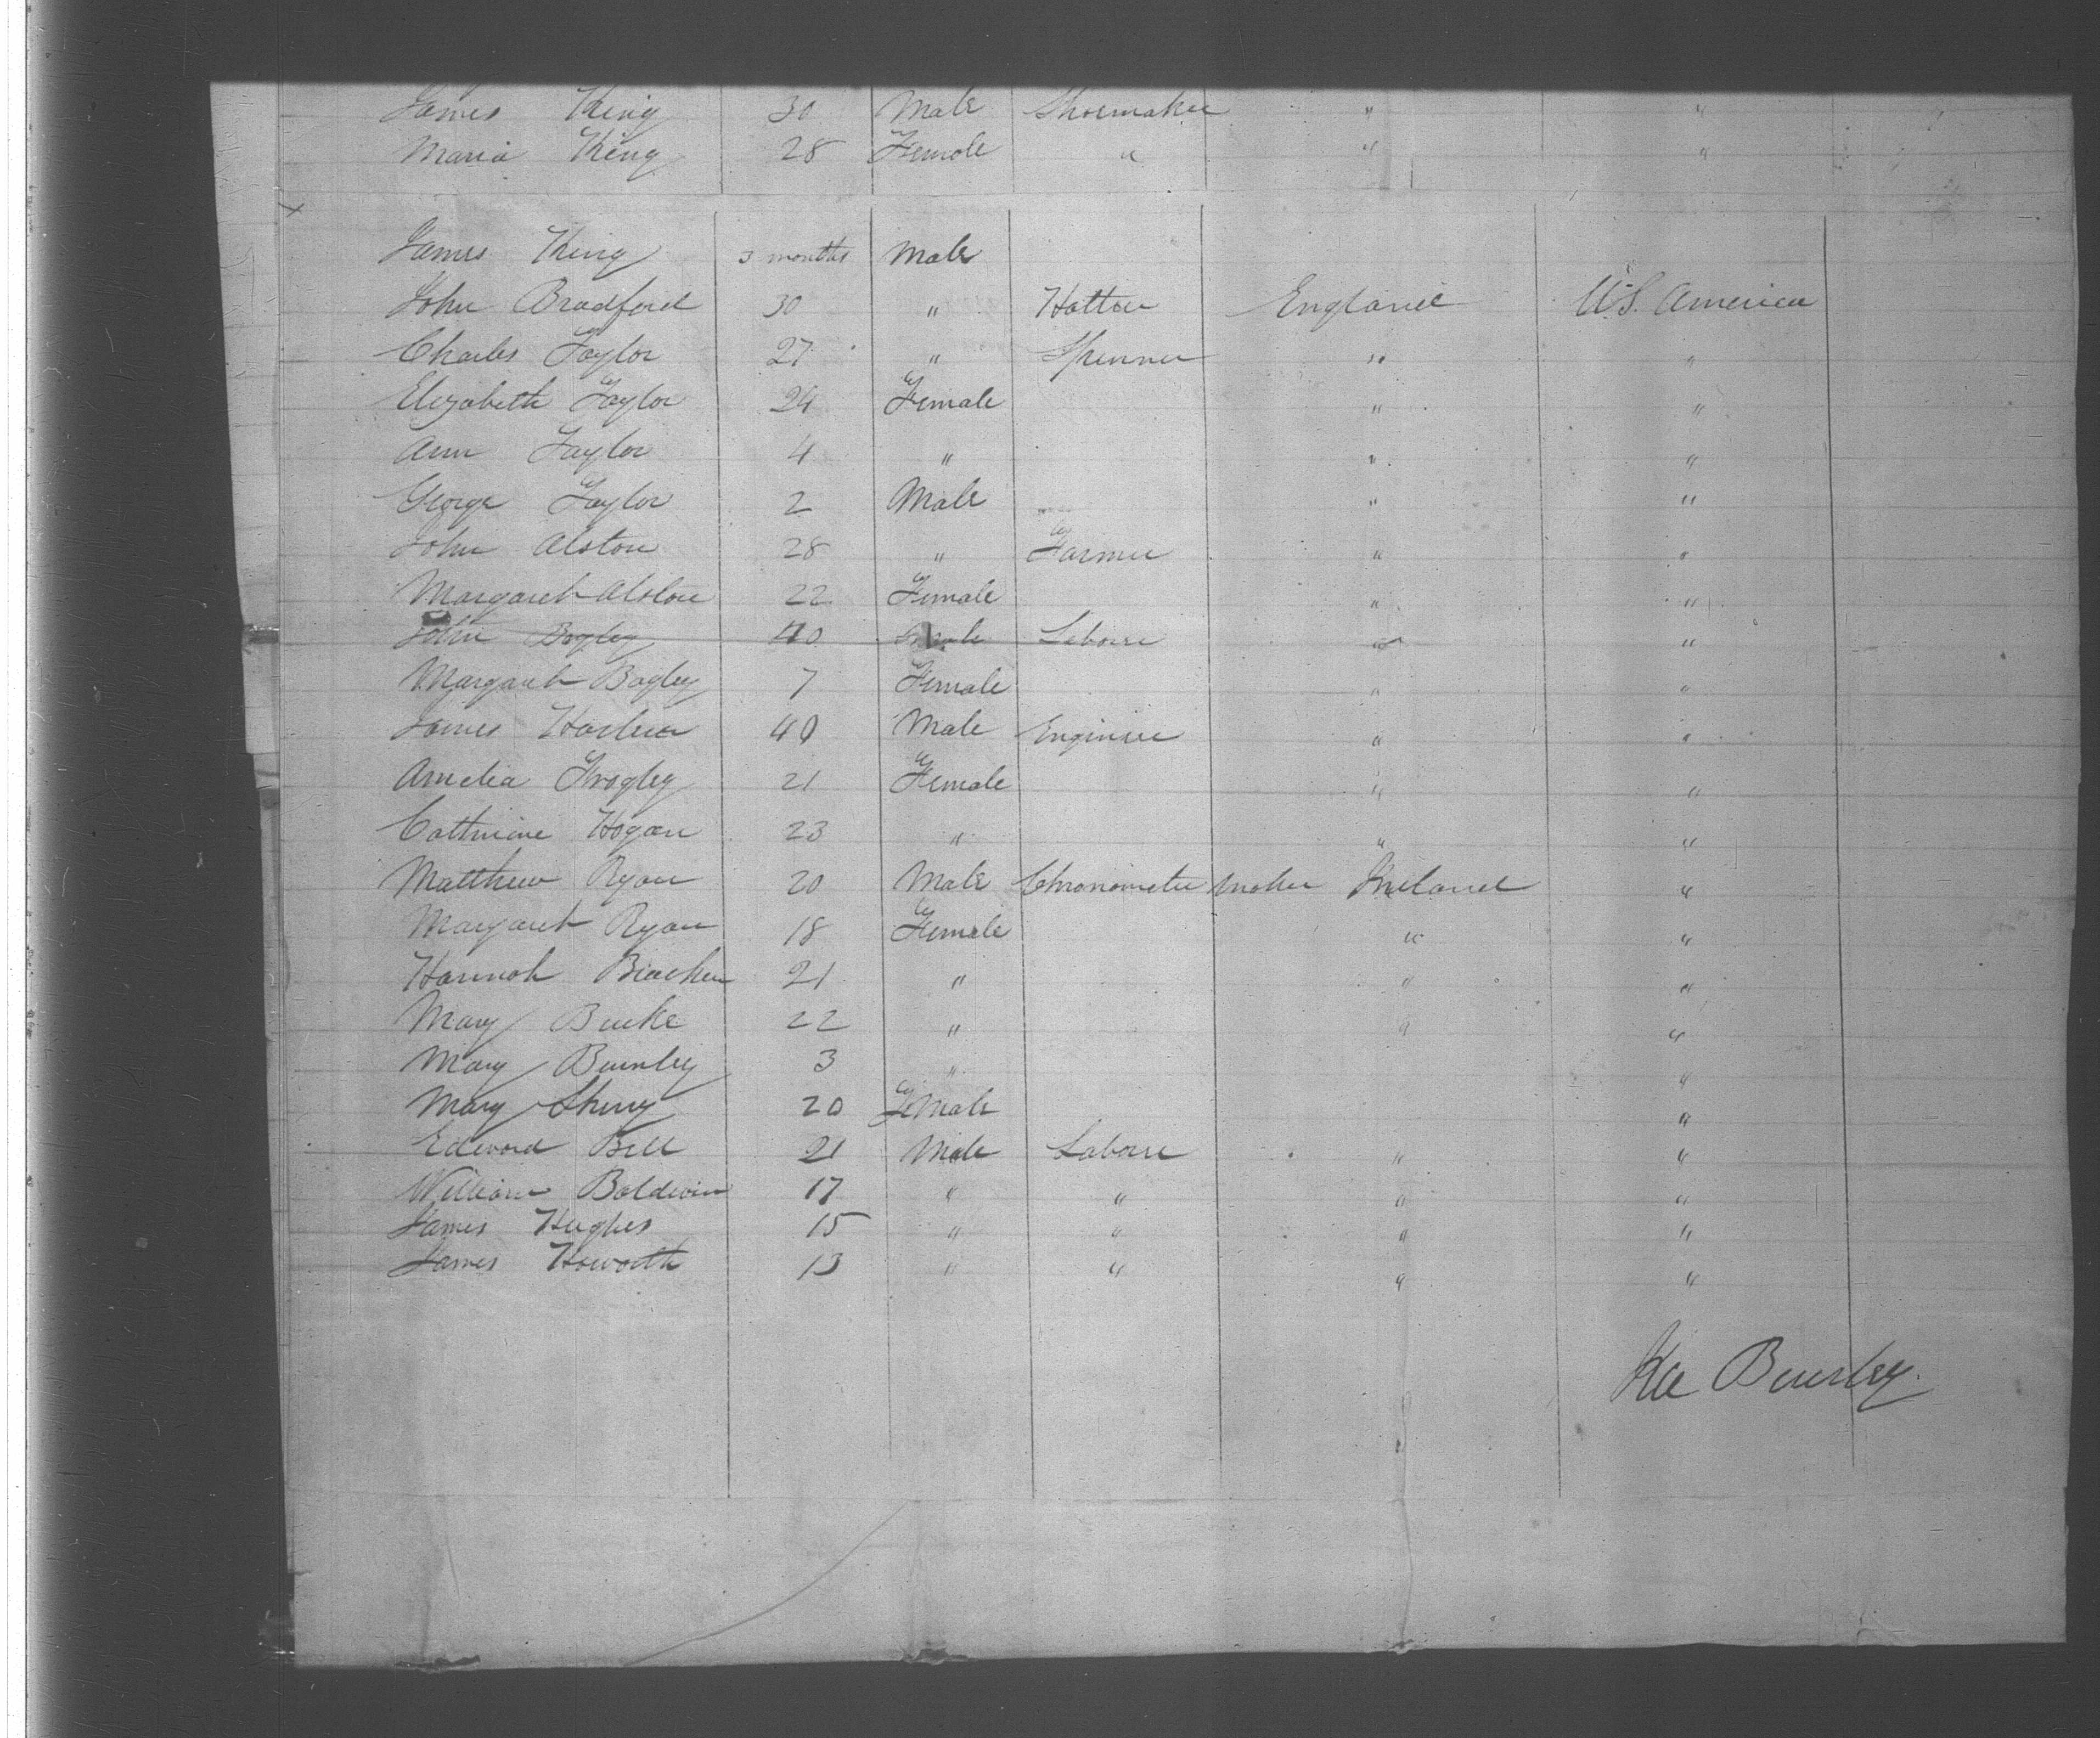 James King 30 Male Shoemaker " "
Maria King 28 Female " " "
James King 3 months Male
John Bradford 30 " Hatter England U.S. America
Charles Taylor 27 " Spinner " "
Elizabeth Taylor 24 Female " "
Ann Taylor 4 " " "
George Taylor 2 Male " "
John Alston 28 " Farmer " "
Margaret Alston 22 Female " "
John Bagley 40 Male Laborer " "
Margaret Bagley 7 Female " "
James 40 Male Engineer " "
Amelia Frogley 21 Female " "
Catherine Hogan 23 " " "
Matthew Ryan 20 Male Chronometer Maker Ireland "
Margaret Ryan 18 Female " "
Hannah Bracken 21 " " "
Mary Burke 22 " " "
Mary 3 " "
Mary 20 Female "
Edward Bell 21 Male Laborer " "
William Baldwin 17 " " " "
James Hughes 15 " " " "
James Howorth 13 " " " "
Bursley